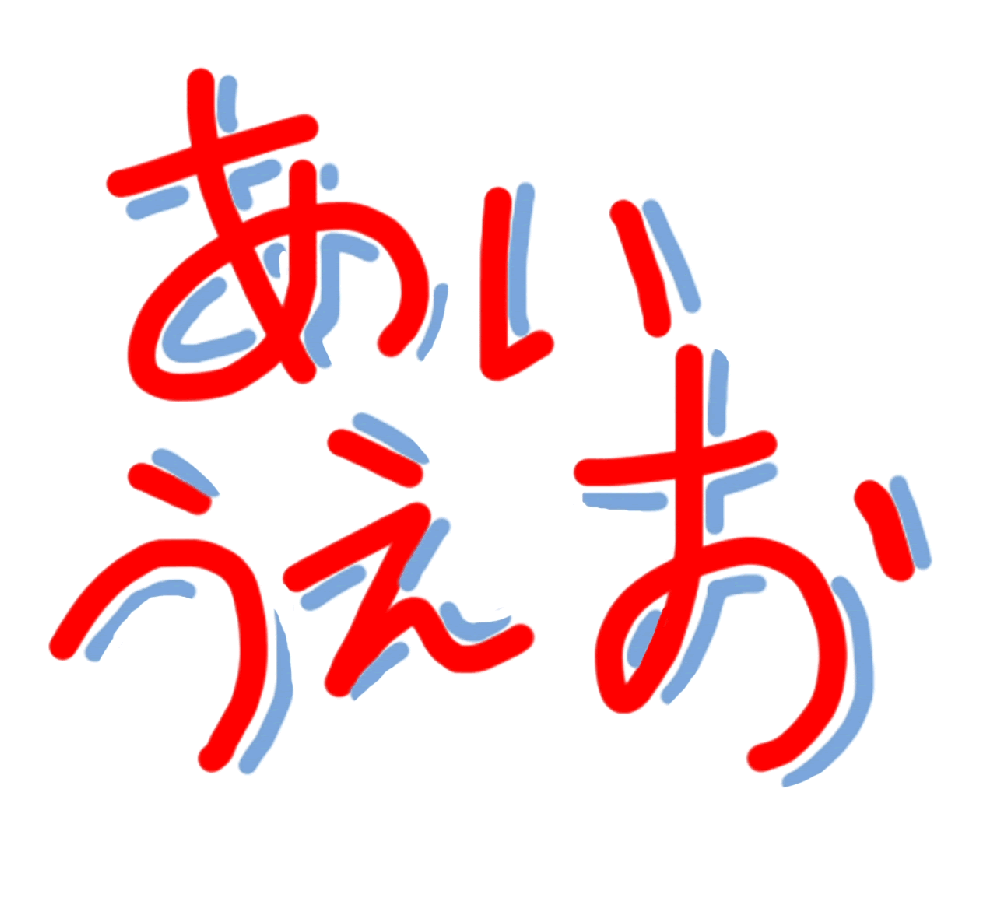 あい
うえお